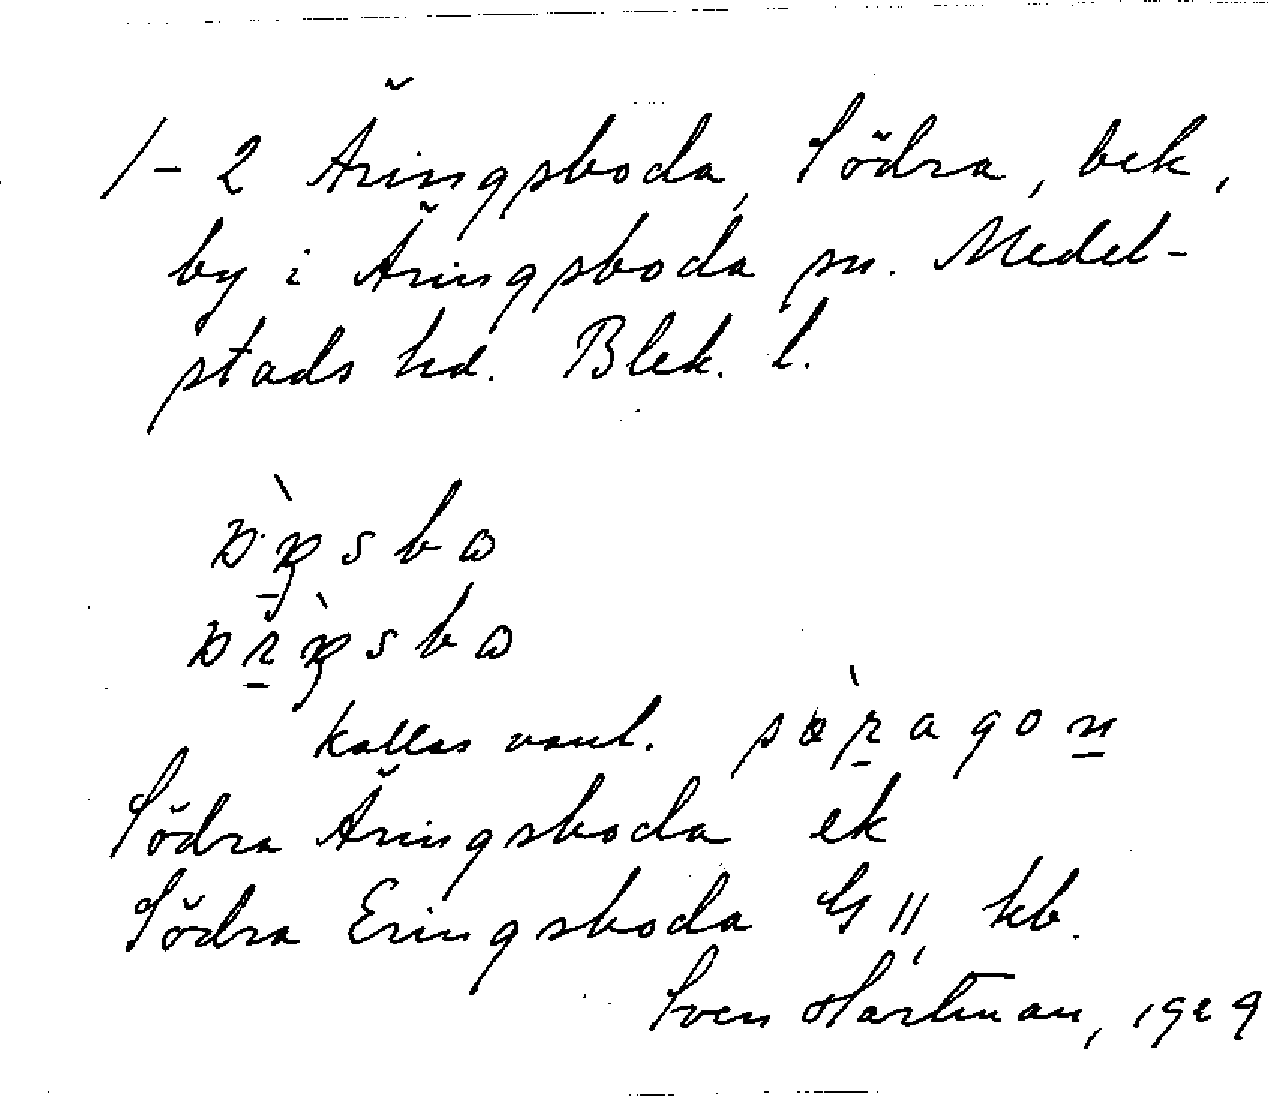 1-2 Äringsboda, Södra, bek,
by i Äringsboda sn. Medel-
stads hd. Blek. l.
kallas vanl.
Södra Äringsboda ek
Södra Eringsboda G II, kb.
Sven Hartman, 1929